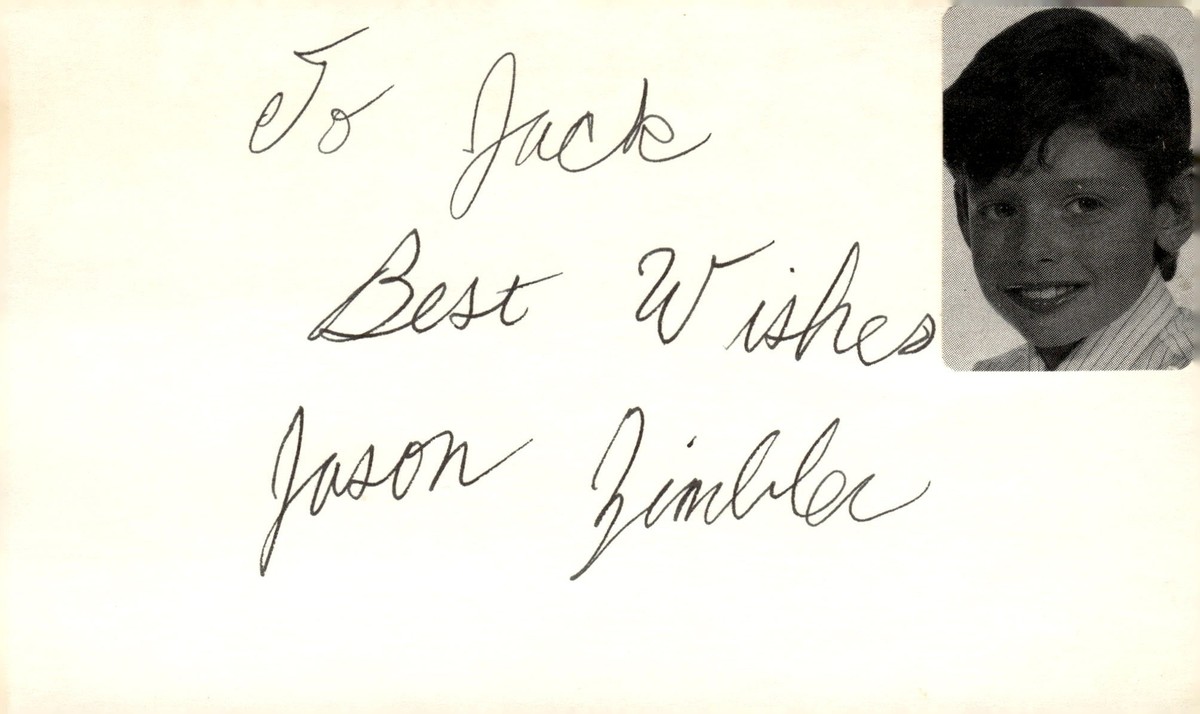 To Jack
Best Wishes
Jason Zimbler